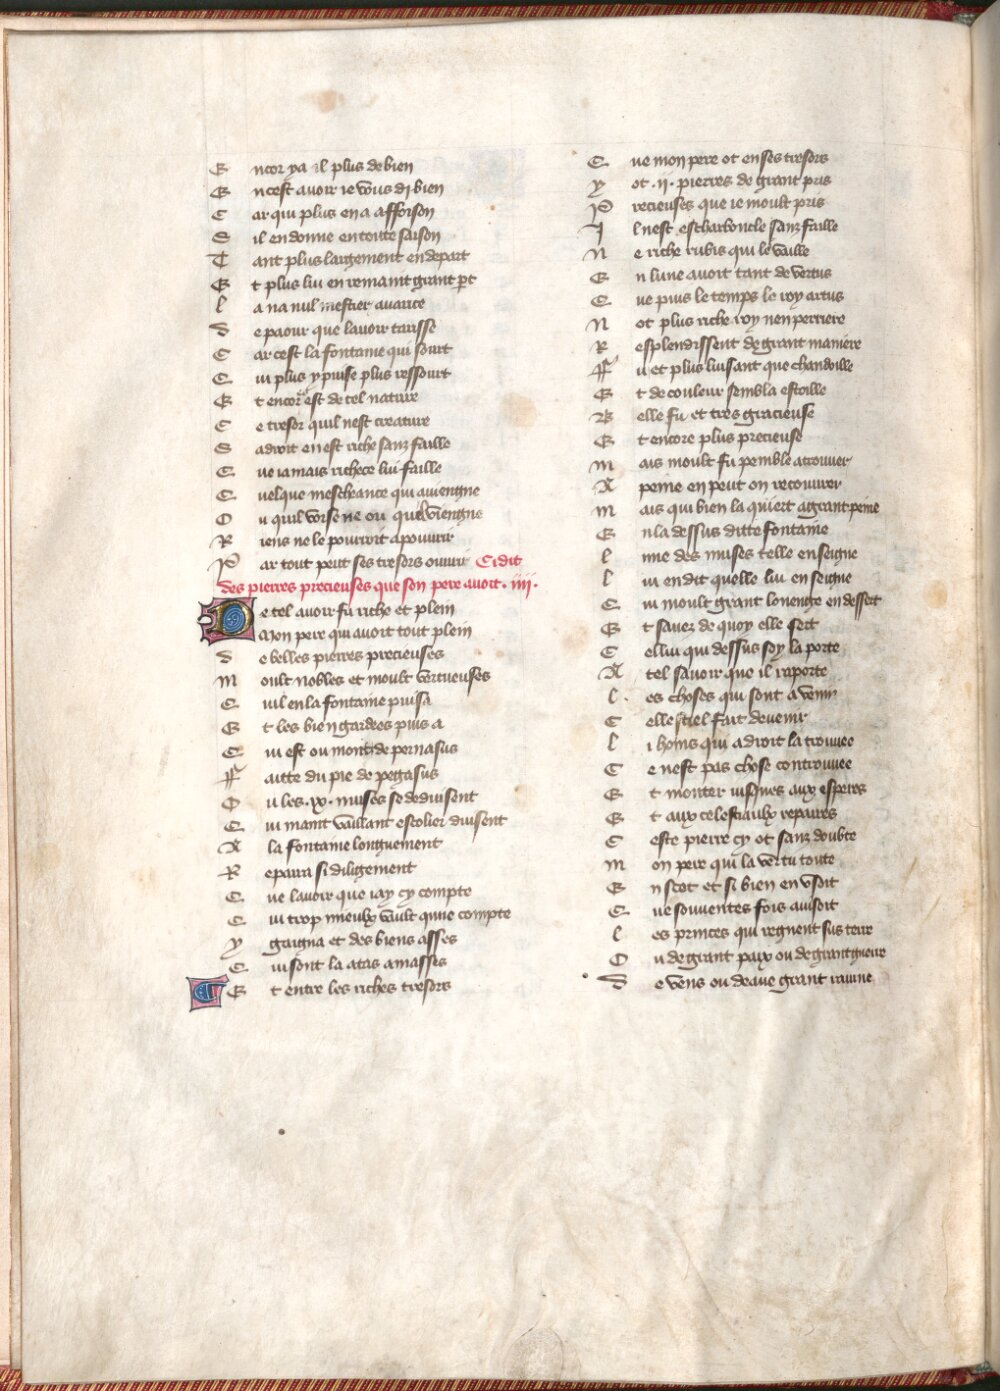 Encor ya il plus de bien
Encest avoir ie vous di bien
Car qui plus en a afforson
Sil en donne en toute saison
Tant plus largement en depart
Et plus lui en remaint grant part
La na nul mestier avarice
de paour que lavoir tarisse
Car cest la fontaine qui sourt
Cui plus y puise plus ressourt
Et encor est de tel nature
Ce tresor quil nest creature
Sadroit en est riche sanz faille
Que iamais richece lui faille
Quelque mescheance qui aviengne
Ou quil voise ne ou quel viengne
Riens ne le pourroit apouvrir
Par tout peut ses tresors ouvrir Ci dit
des pierres precieuses que son pere avoit .iiii.
De tel avoir fu riche et plein
Mon pere qui avoit tout plein
de belles pierres precieuses
moult nobles et moult vertueuses
Quil en la fontaine puisa
Et les bien gardees puis a
Qui est ou mont de pernasus
ffaitte du pie de pegasus
Ou les .ix. muses se deduisent
Qui maint vaillant escolier duisent
A la fontaine longuement
Repaira si diligement
Que lavoir que iay cy compte
Qui trop mieulx vault quune compte
y gaigna et des biens asses
Qui sont la atas amasses
Et entre les riches tresors
Que mon pere ot en ses tresors
y ot .ii. pierres de grant pris
Precieuses que ie moult pris
Il nest escharboncle sanz faille
ne riche rubis qui le vaille
En lune avoit tant de vertus
Que puis le temps le roy artus
Not plus riche roy nen perriere
Resplendissent de grant maniere
ffu et plus luisant que chandoille
Et de couleur sembla estoille
Belle fu et tres gracieuse
Et encore plus precieuse
mais moult fu penible a trouver
A peine en peut on recouvrer
mais qui bien la quiert a grant peine
En la dessus ditte fontaine
lune des muses telle enseigne
lui en dit quelle lui enseigne
Cui moult grant louenge en dessert
Et savez de quoy elle sert
Cellui qui dessus soy la porte
A tel savoir que il raporte
les choses qui sont a venir
Celle stiel fait devenir
li homs qui a droit la trouvee
Ce nest pas chose controuvee
Et monter iusques aux esperes
Et aux celestiaulx repaires
Ceste pierre cy ot sanz doubte
mon pere qui la vertu toute
En scot et si bien en usoit
Que souventes fois avisoit
les princes qui regnent sus terre
Ou de grant paix ou de grant guerre
de vens ou deaue grant ravine